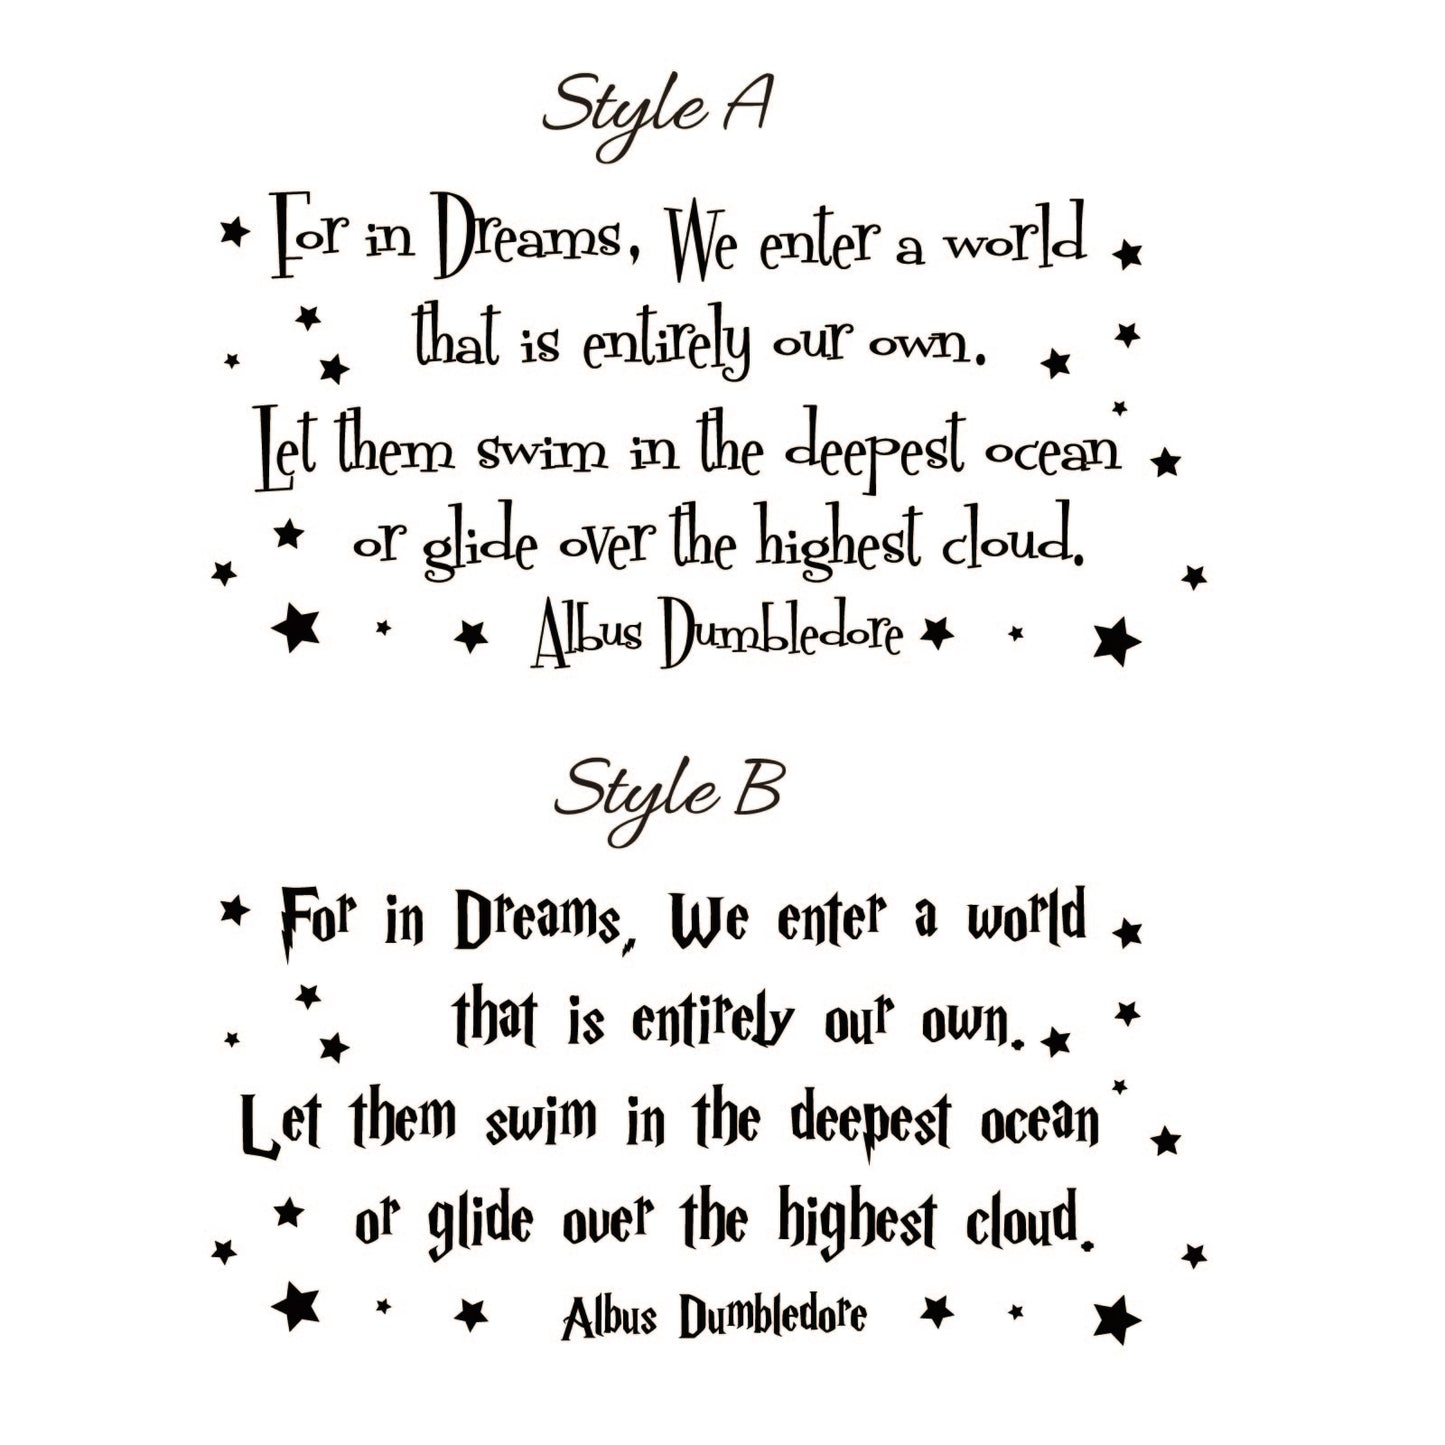 Style A
For in Dreams, We enter a world
that is entirely our own.
Let them swim in the deepest ocean
or glide over the highest cloud.
Albus Dumbledore
Style B
For in Dreams, We enter a world
that is entirely our own.
Let them swim in the deepest ocean
or glide over the highest cloud.
Albus Dumbledore